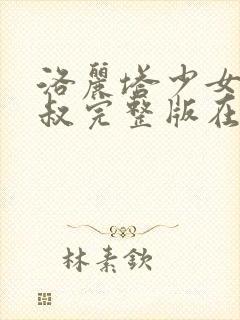 洛麗塔少女
叔完整版在
林素欽